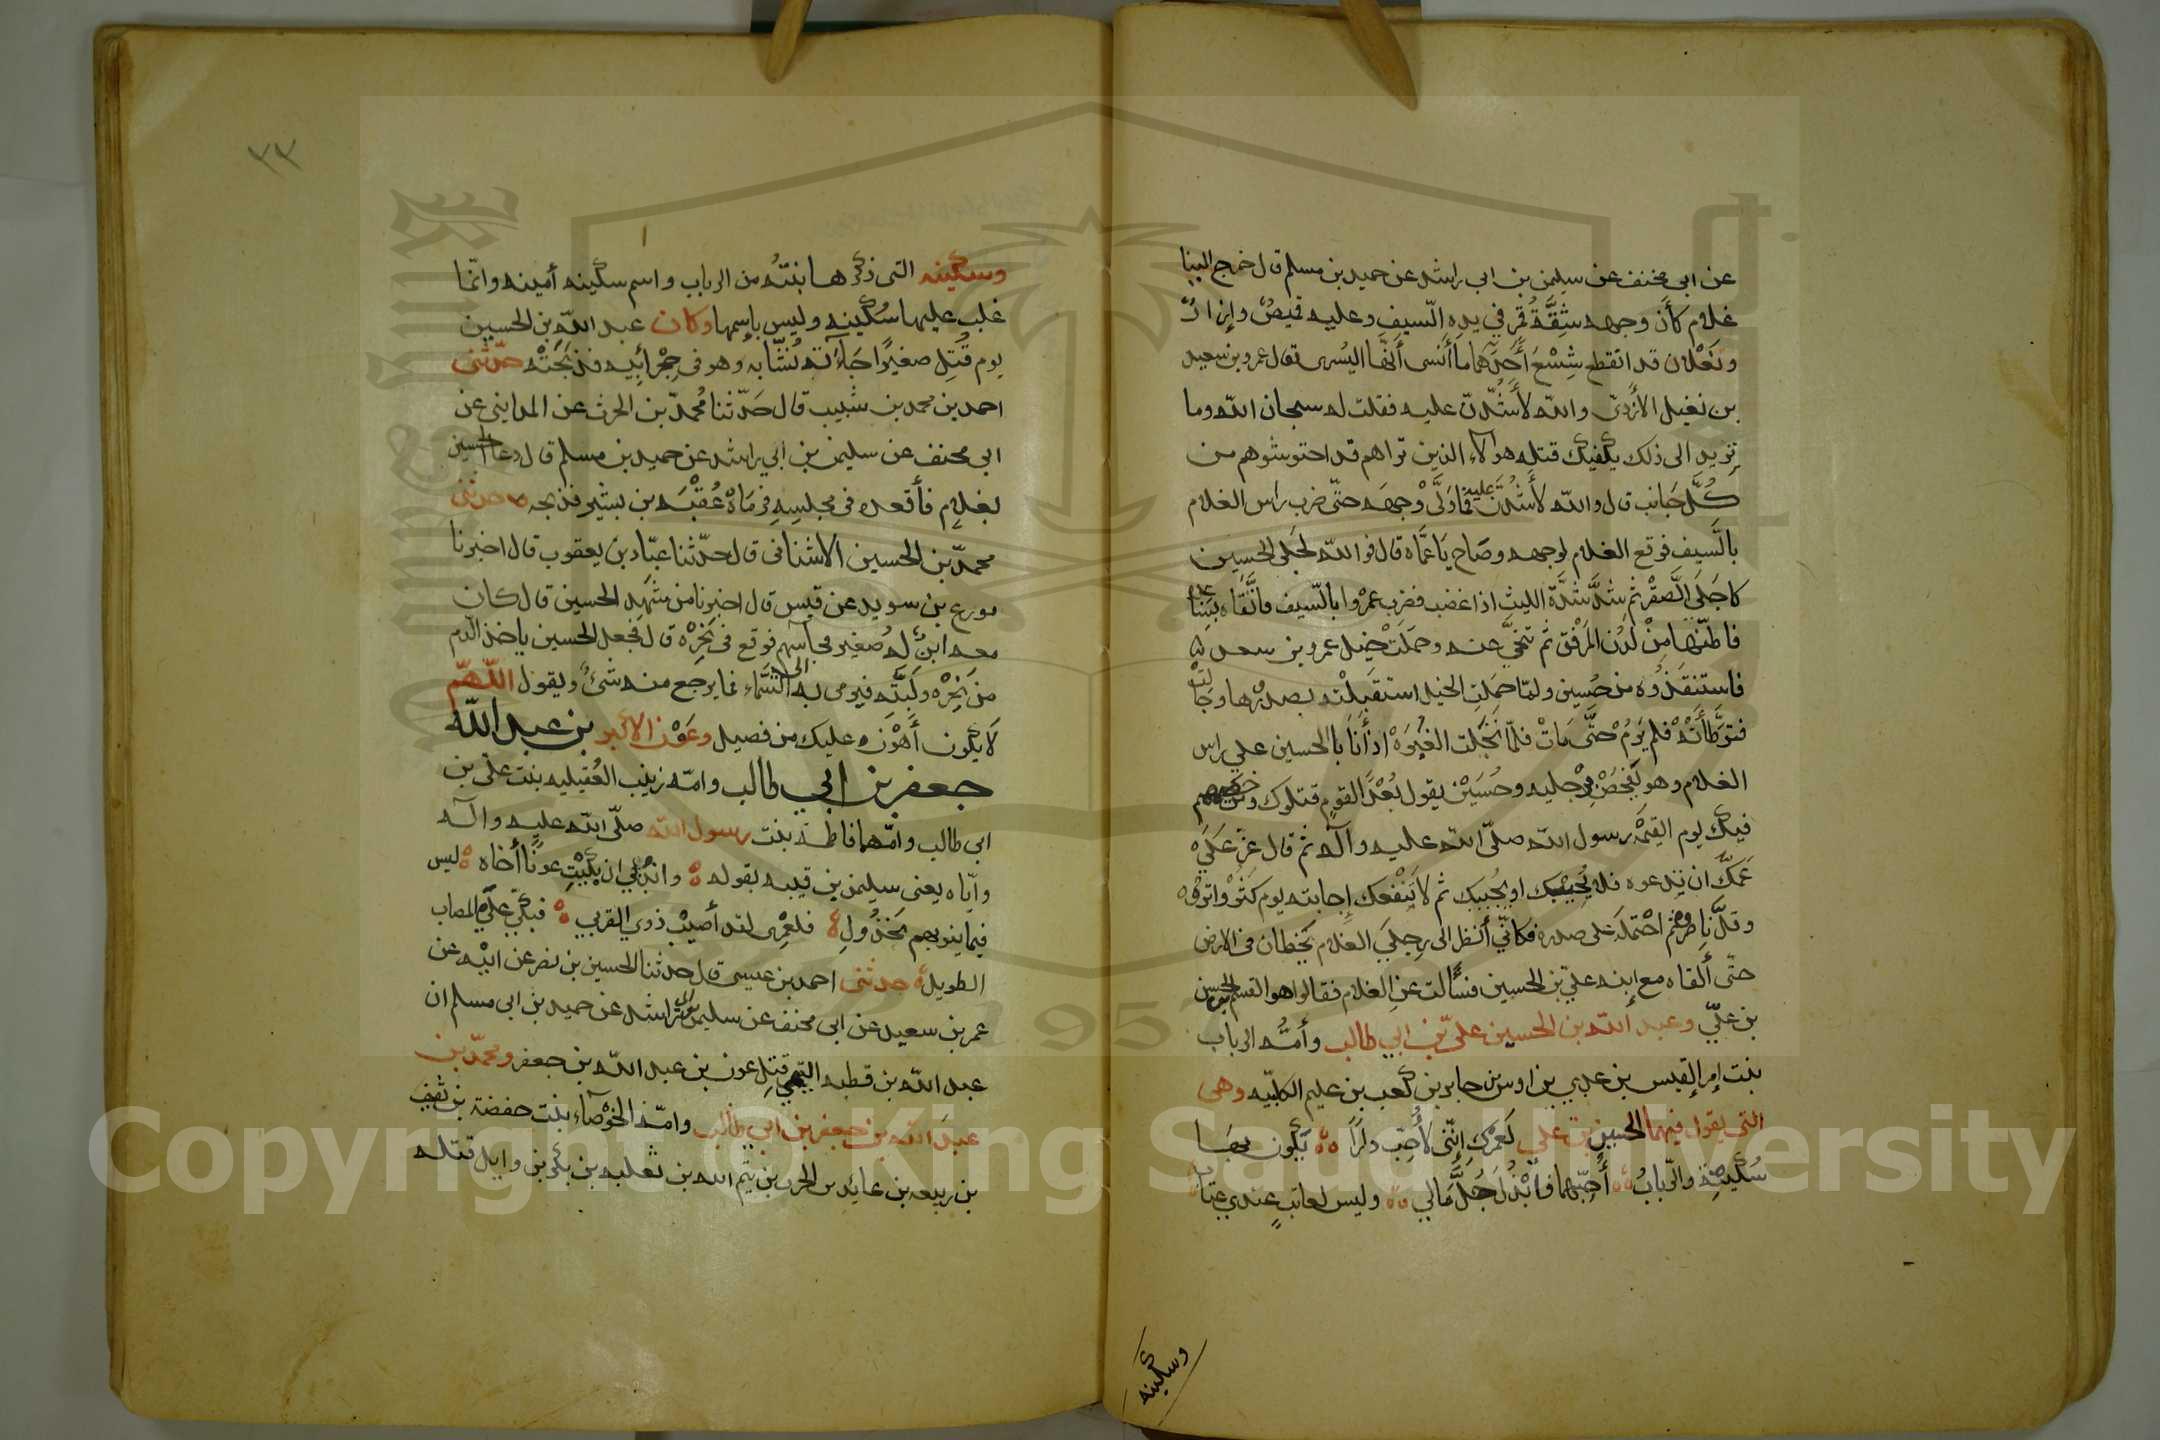 عن ابي مخنف عن سليمن بن ابي راشد عن حميد بن مسلم قال خرج الينا
غلام كأن وجهه شِقَّةُ قمر في يدِهِ السّيف وعليه قميصٌ وإزارٌ
ونعْلان قد انقطع شِسْعُ أَحَدِهما ما أنسى أنّها اليُسرى فقال عمرو بن سعيد
بن نفيل الأزديّ والله لأشُدّنّ عليه فقلت له سبحان الله وما
تريد الى ذلك يكفيك قتله هولاء الذين تراهم قد احتوشوهم من
كُلّ جَانب قال والله لأشُدّنّ عليه فما ولّى وجهَه حتّى ضرب راس الغلام
بالسّيف فوقع الغلام لوجهه وصَاح يَا عمّاه قال فوالله لجَلى الحسين
كما جَلَى الصّقْر ثم شدّ شدّة الليث اذا غضب فضرب عمرْوا بالسّيف فاتّقاه بسَاعده
فاطنّهَا مِنْ لَدُن المَرْفق ثم تنحّى عنه وحمَلَتْ خيل عمرو بن سعد
فاستنقذُوه من حُسين ولمّا حمَلَت الخيل استقبلتْه بصدرُها وجَالَتْ
فتوطّأَتْهُ فلم يَرُمْ حتّى مَاتْ فلمّا تجَلّت الغُبْرَهْ اذ أنَا بالحسين علي راس
الغلام وهو يَفْحَصُ برِجليه وحُسَيْن يقول بُعْدًا لقومٍ قتلوك ومن خصمهم
فيك يوم القيمْة رسول الله صلّى الله عليه وآله ثم قال عزّ عَلَي
عَمّك ان تدعوه فلا يُجيبك او يُجيبك ثم لا تَنْفعك إجابته يوم كثرْ واتروه
وقلّ نَاصِروه ثم احْتملَه على صدره فكانّي أنظر الى رِجلَي الغلام يَخطان في الارض
حتّى ألقاه مع إبنه عليّ بن الحسين فسألت عنِ الغلام فقالوا هو القسم بن الحسن
بن عليّ وعبد الله بن الحسين علي بن ابي طالب وأمّه الرباب
بنت إمرإِ القيس بن عدي بن اوس بن جابر بن كعب بن عليم الكلبيّه وهى
التى يقول فيها الحسين بن علي لعَمْرُك إنّنى لأُحِبّ دارًا تكون بهَا
سُكينة والرّبابُ أُحِبّهما فأبْذُلُ جُلّ مَالي وليس لعاتبٍ عندي عتاب
وسكينه
٣٣
وسكينه التى ذكرها بنتُه من الرباب واسم سكينه أمينه وانّما
غلب عليها سُكينه وليس بإسمها وكان عبد الله بن الحسين
يوم قُتِل صغيرًا جَاءَته نُشّابه وهو في حِجْر أَبِيه فذبحَتْه حدّثنى
احمد بن محمد بن شبيب قال حَدّثنا مُحمدّ بن الحرث عن المدايني عن
ابي مخنف عن سليمن بن ابي راشد عن حميد بن مسلم قال دعا الحسين
بغلام فأقعده في مجلسِهِ فرمَاهُ عُقْبَه بن بشير فذبحه حدثنى
محمدّ بن الحسين الاشنانى قال حدّثنا عبّاد بن يعقوب قال اخبرنا
مورع بن سويد عن قيس قال اخبرنا من شَهِدَ الحسين قال كان
معه ابنٌ لهُ صغير فجآ سهم فوقع في نَحْرِهْ قال فجعل الحسين ياخذ الدّم
من نَحْرِهْ ولَبّته فيومى به الى السّمَاء فما يرجع منه شئٌ ويقول اللّهمّ
لَا يكون أَهْوَنَ عليك من فصيل وعَوْن الاكبر بن عبد الله
جعفر بن ابي طالب وامّه زينب العُقيليه بنت عليّ بن
ابي طالب وامّها فاطمة بنت رسول الله صلّى الله عليه وآله
وايّاه يعنى سليمن بن قيبه بقوله واندُبِي ان بكيْتِ عونًا أخاه ليس
فيما ينوبهم بخَذُولِ فلعَمْرى لقد أصيْب ذوي القربي فبكّي علي المصاب
الطويل حدثنى احمد بن عيسى قال حدثنا الحسين بن نصر عن ابيْه عن
عمر بن سعيد عن ابي مخنف عن سليمن بن ابي راشد عن حميد بن ابي مسلم ان
عبد الله بن قطبه التيمي قتل عون بن عبد الله بن جعفر ومحمدّ بن
عبدَ الله بن جعفر بن ابي طالب وامّه الخوْصَاء بنت حفصة بن ثقيف
بن ربيعه بن عايد بن الحرث بن تيم الله بن ثعلبه بن بكر بن وايل قتله
Copyright © King Saud University
1957